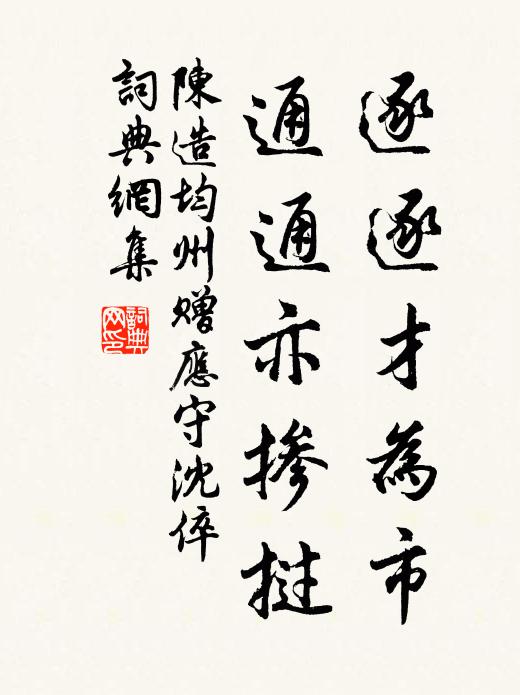 逐逐才為市
通通亦摻撻
陳造均州贈應守沈倅
詞典網集
詞典网印